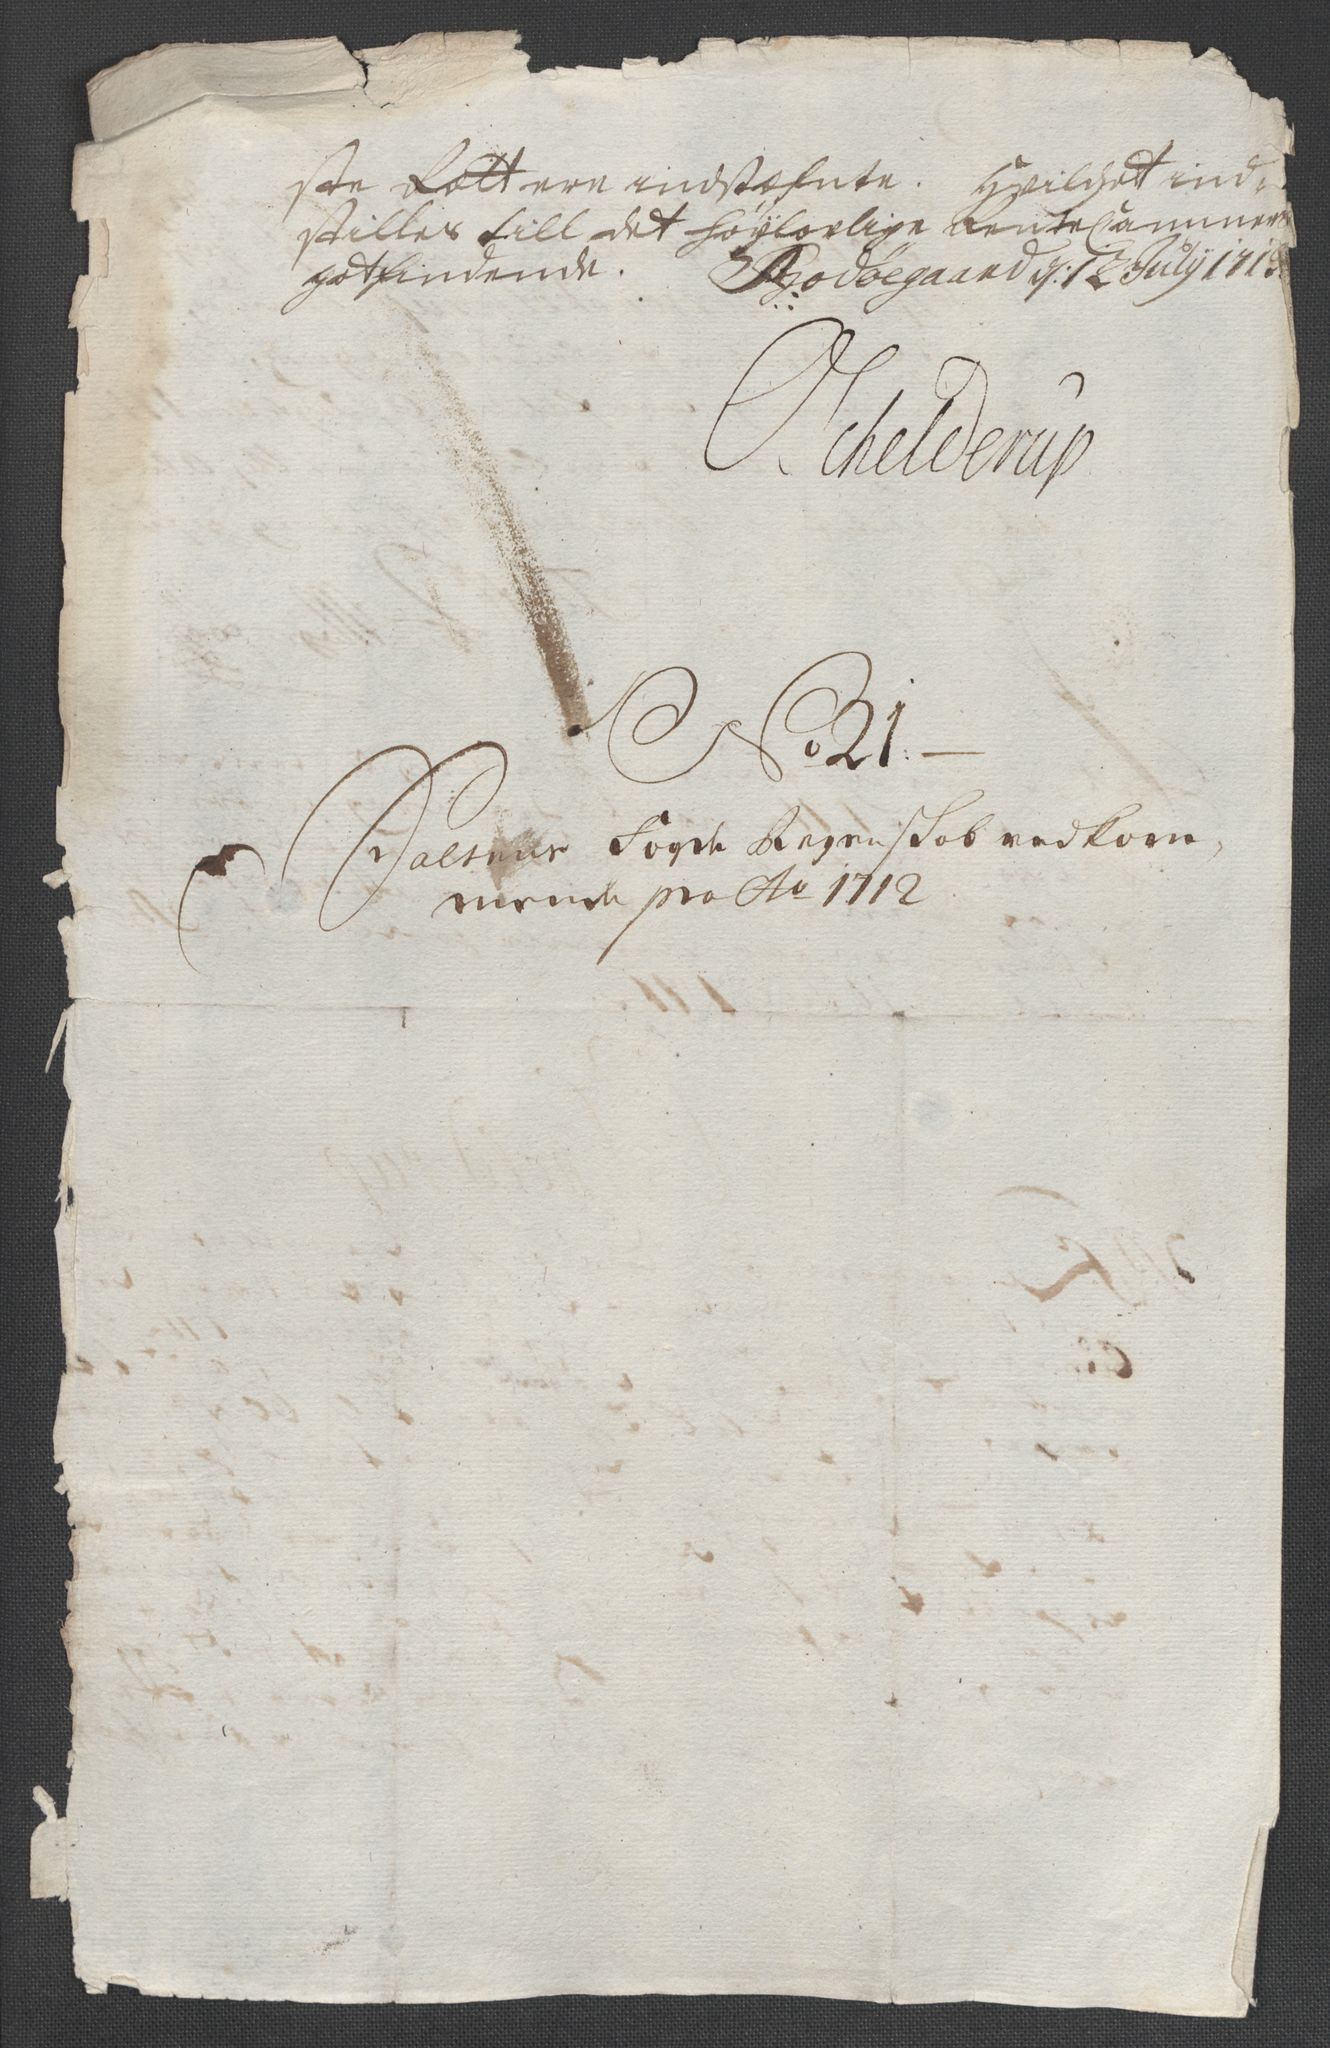 ste Rætt ere indstæfnte. Hvilchet ind-
stilles till det höylovlige Rente Cammers
gotfindende. Bodøegaard d. 12 July 1713
Schelderup
No 21.
Saltens Fogde Regenskab vedkom-
mende pro Ao 1712